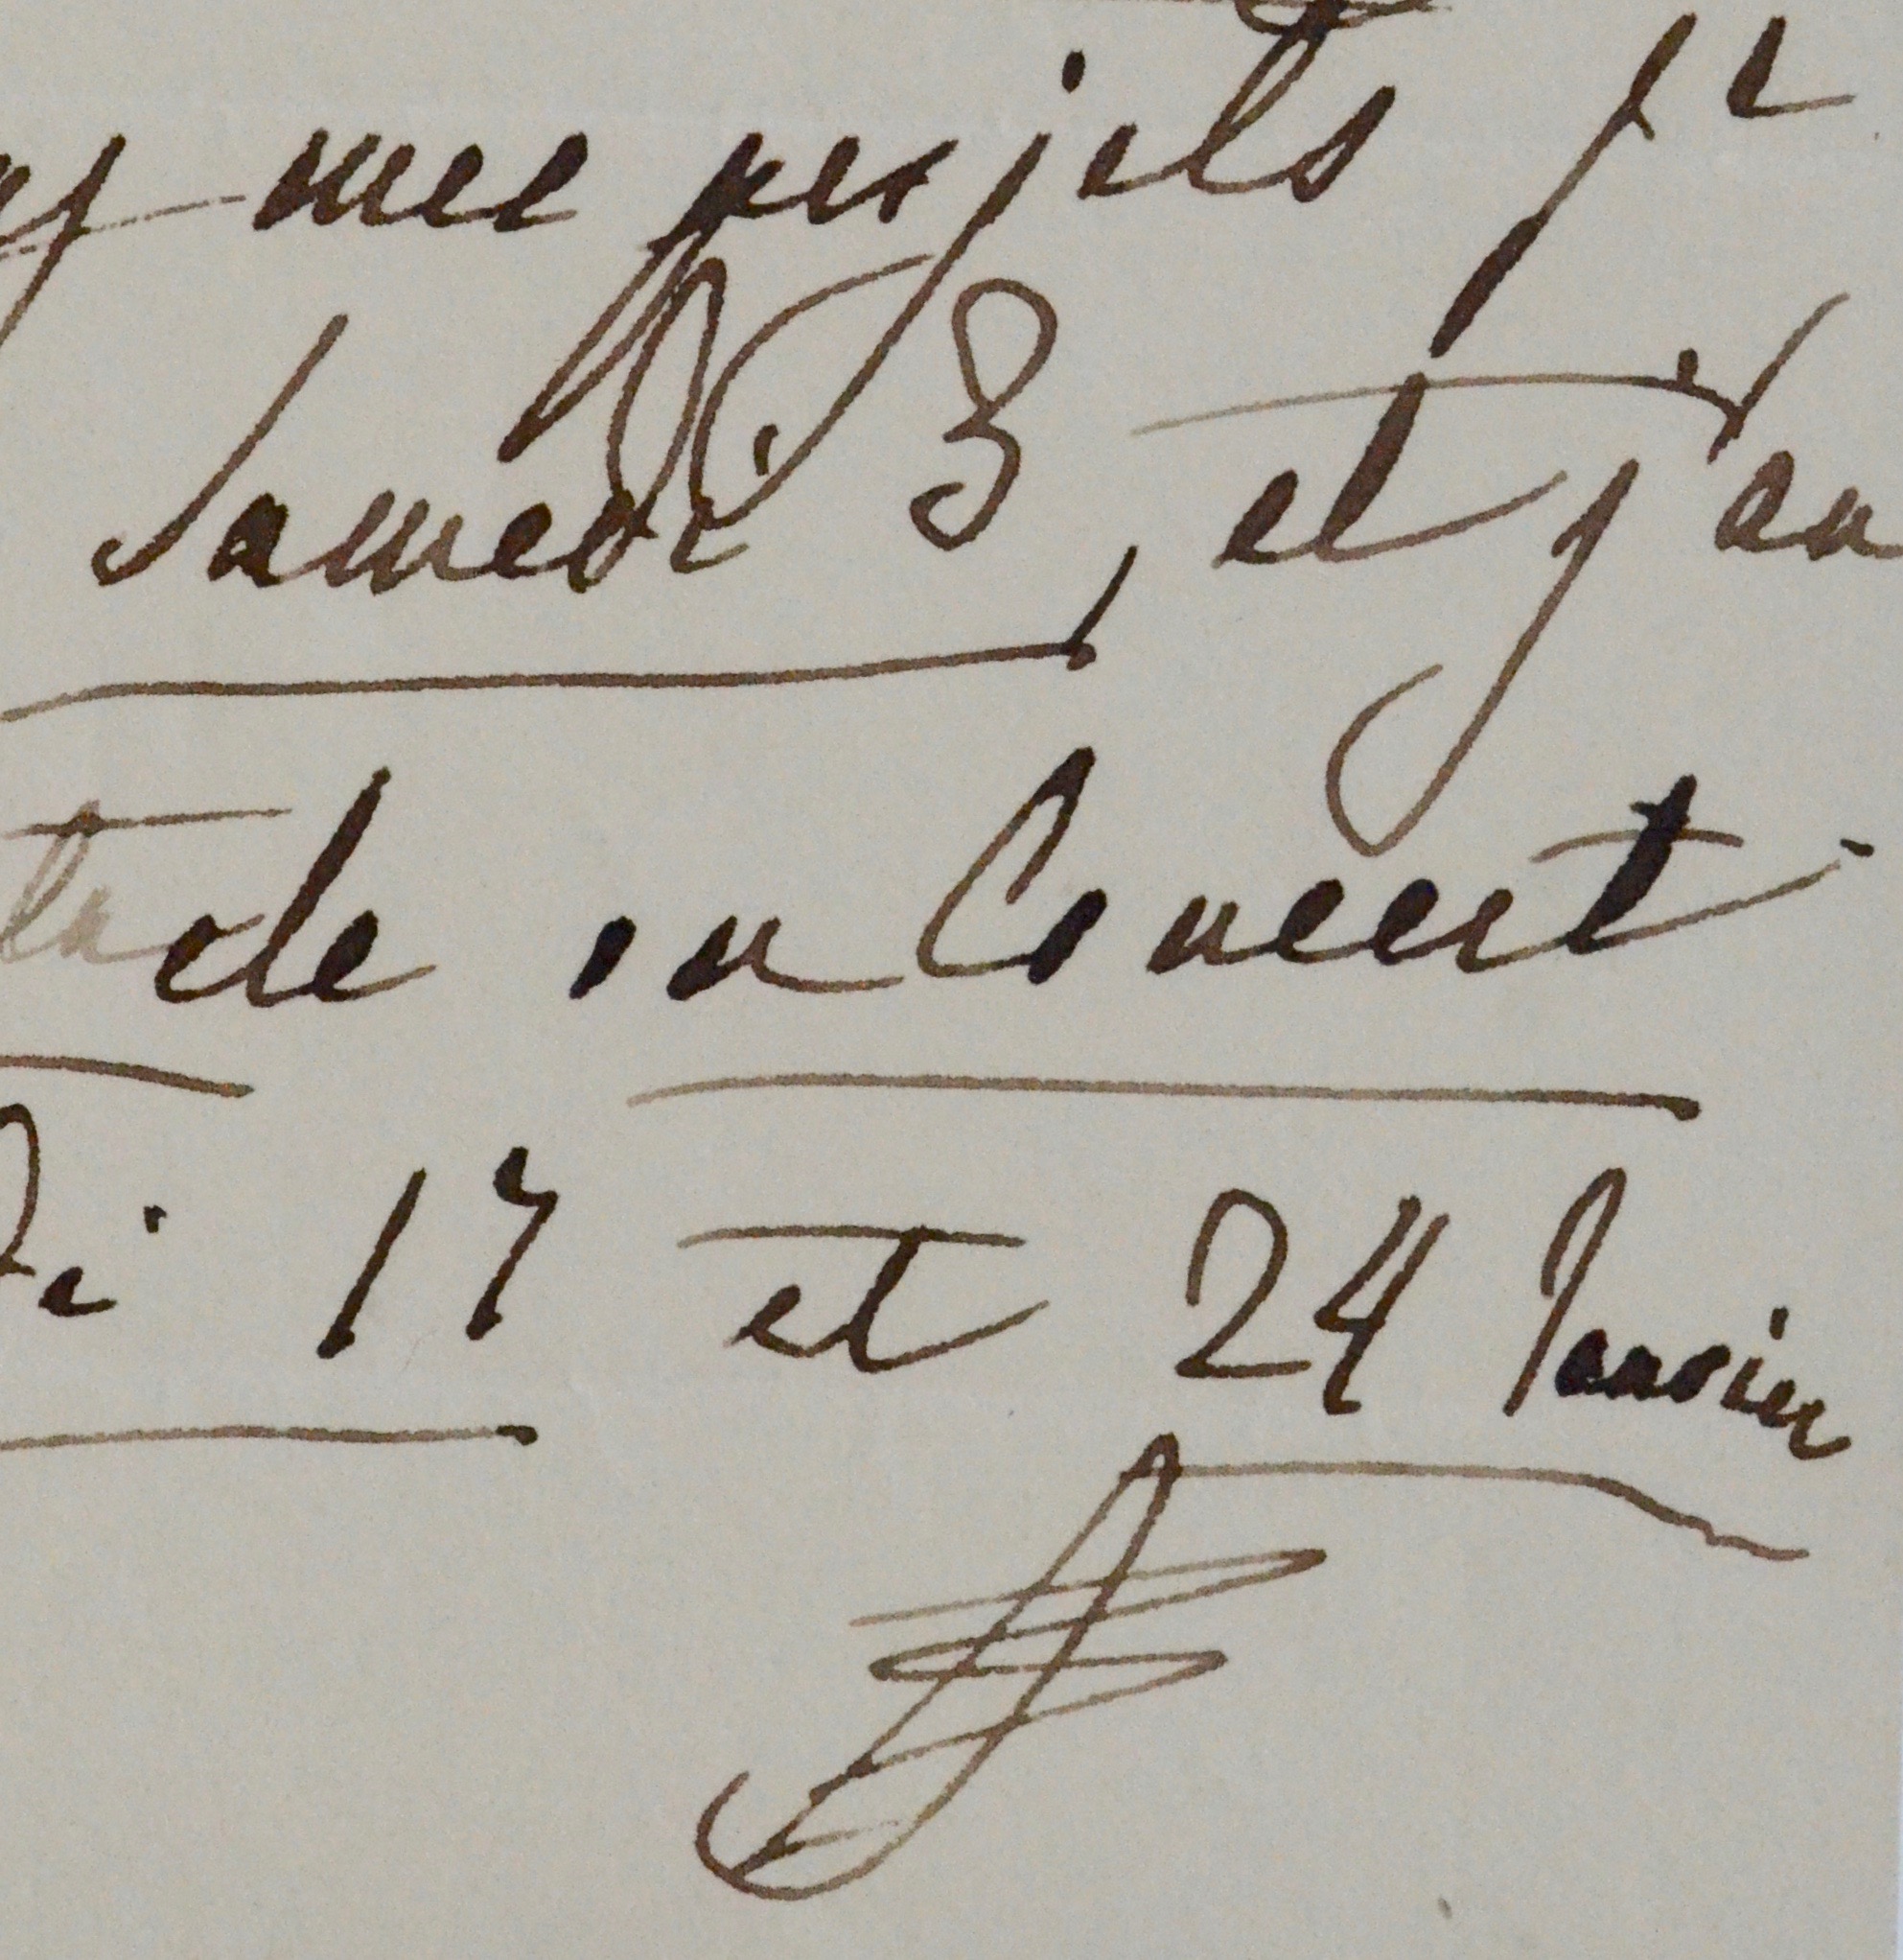 mes projets pr
Samedi 3, et j'au
de ou Concert
di 17 et 24 Janvier